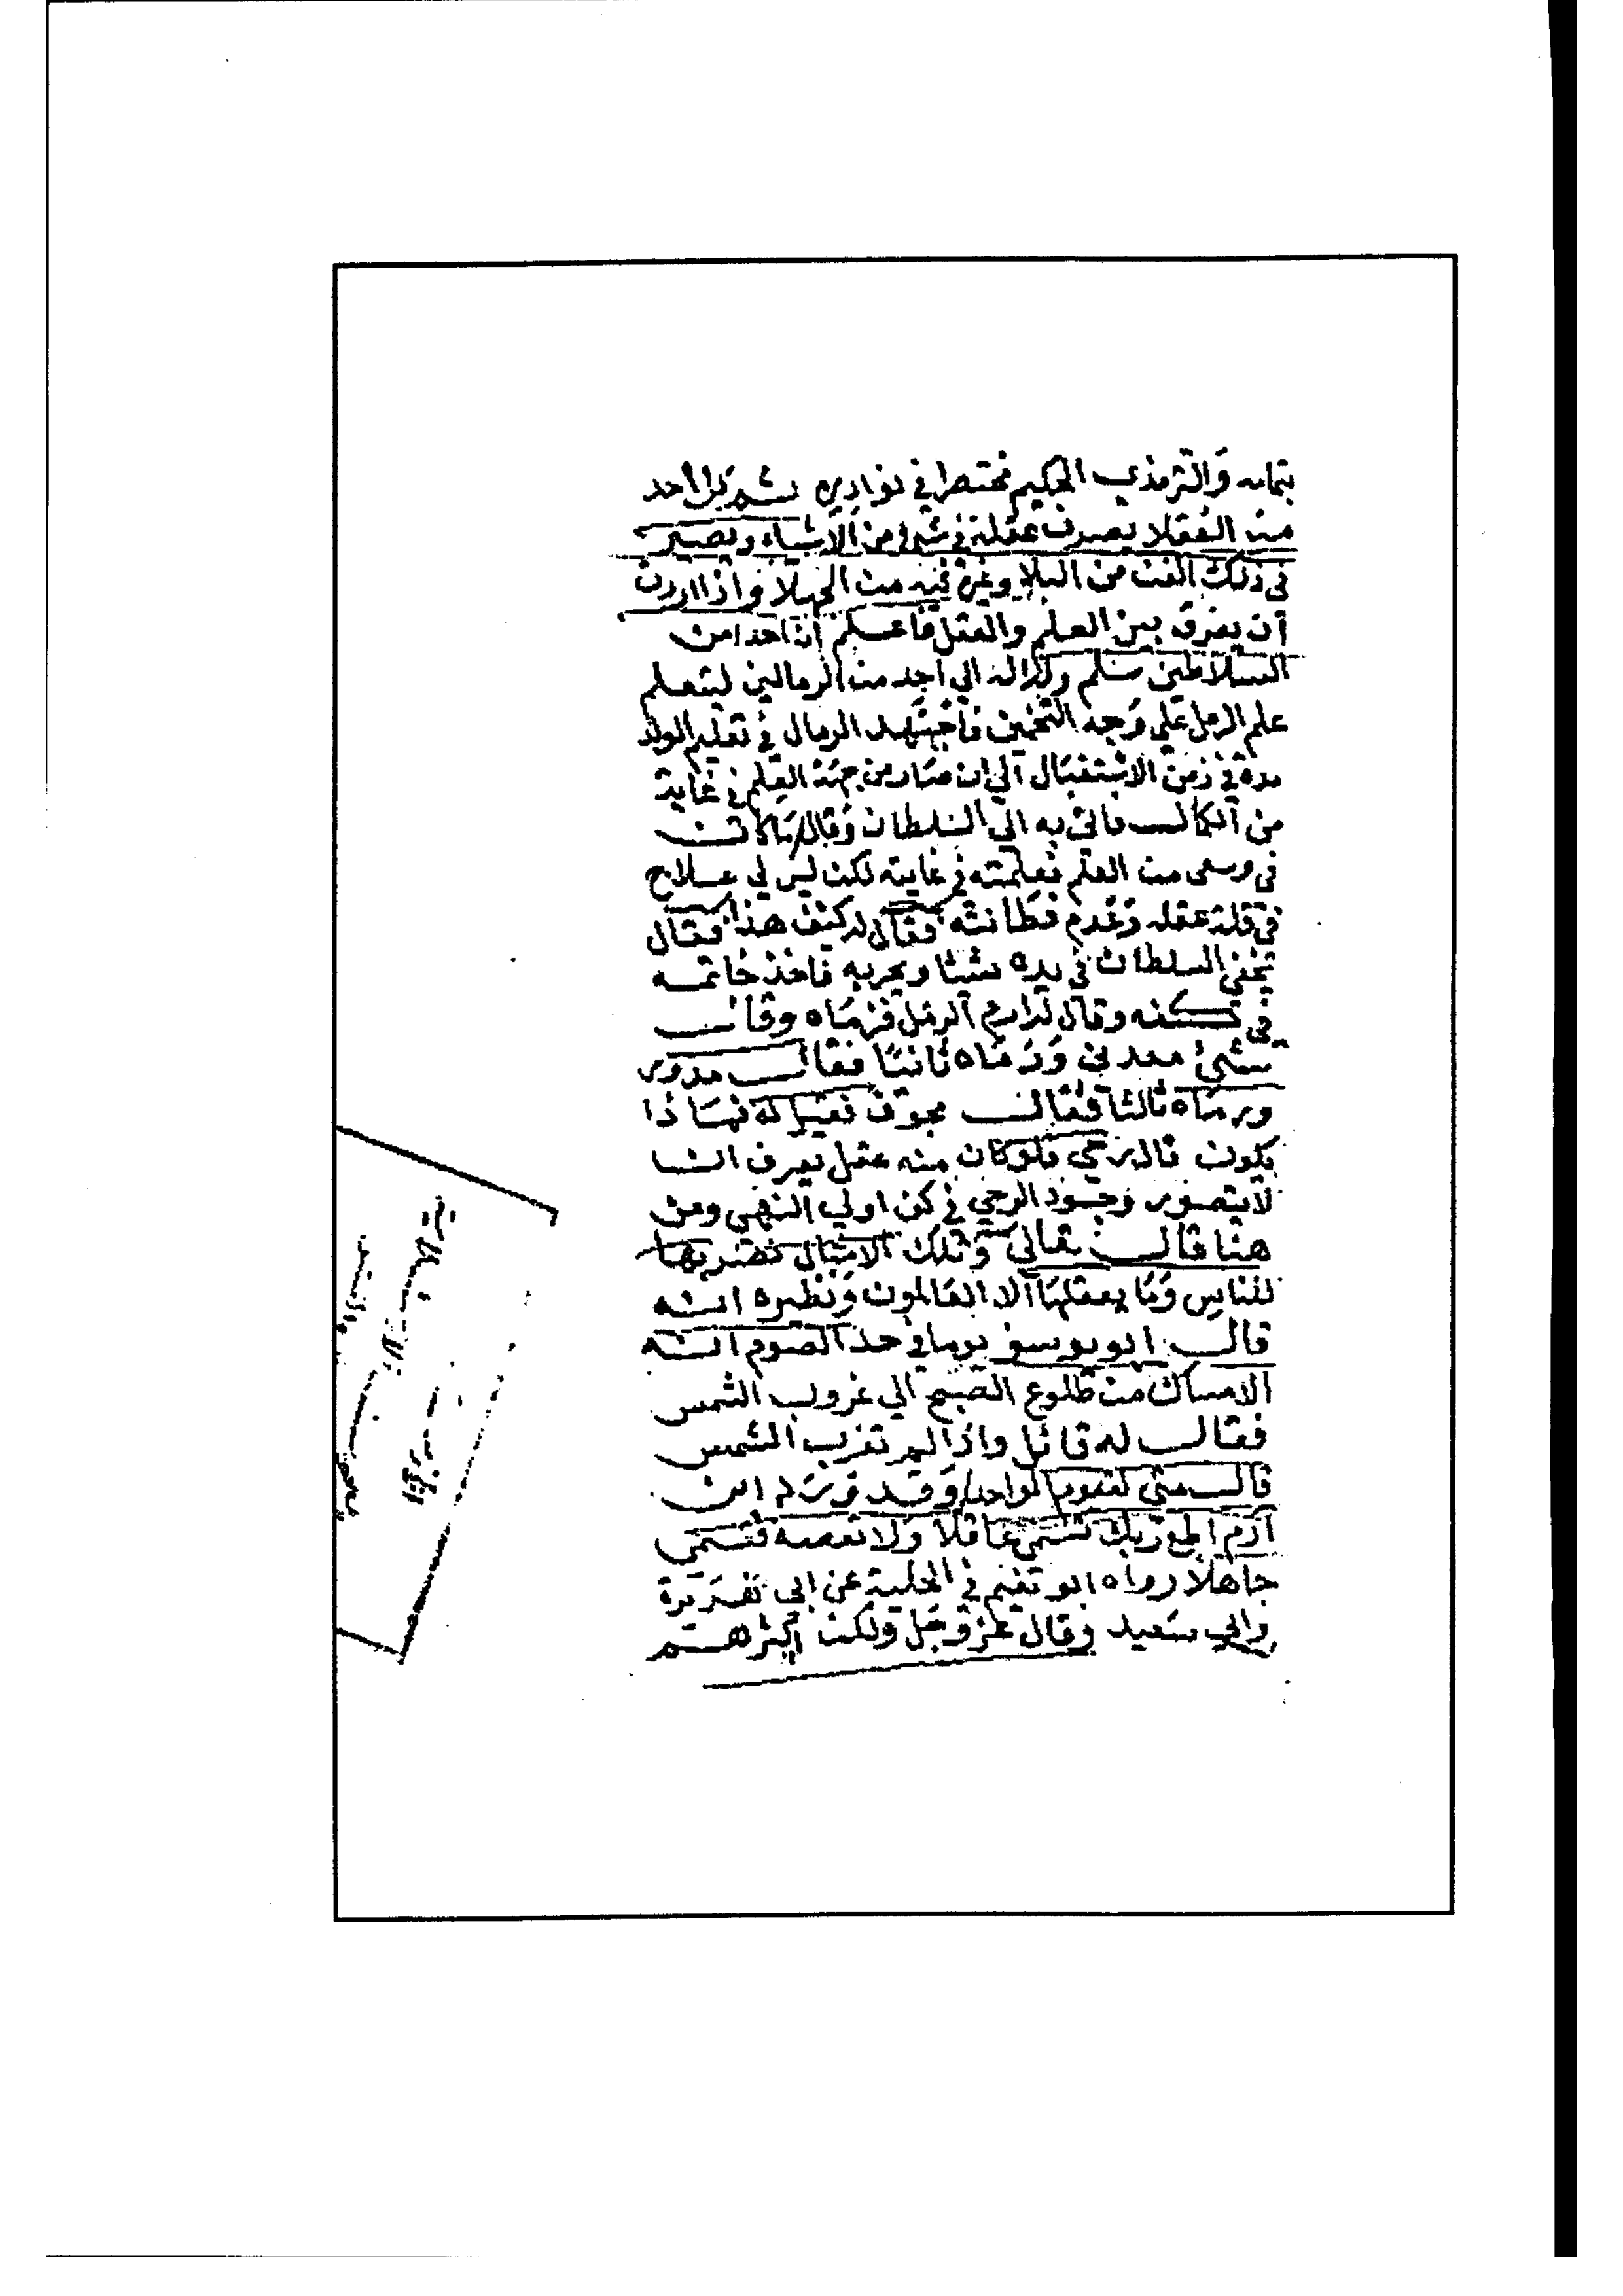 بتمامه والترمذي الحكيم مختصرا في نوادره ثم كل احد
من العقلا يصرف عقله في شي من الاشياء ويصير
في ذلك الفن من النبلا وغيره فيه من الجهلا واذا اردت
ان يفرق بين العلم والعقل فاعلم ان احدا من
السلاطين سلم ولدا له الي احد من الرمالين ليتعلم
علم الرمل علي وجه التخمين فاجتهد الرمال في تعليم الولد
مدة في زمن الاستقبال الي ان صار من جهة العلم في غاية
من الكمال فاتي به الي السلطان وقال ما كان
في وسعى من العلم فعلمته في غايته لكن ليس لي علاج
في قلة عقله وعدم فطانته فقال له كيف هذا فقال
يخفي السلطان في يده شيئا ويجربه فاخذ خاتمه
في كفه وقال له ارم الرمل فرماه وقال
شئ معدني ورماه ثانيا فقال مدور
ورماه ثالثا فقال مجوف فقيل له فماذا
يكون قال رحي فلو كان منه عقل يعرف انها
لا يتصور وجود الرحي في كف اولي النهي ومن
هنا قال تعالي وتلك الامثال نضربها
للناس وما يعقلها الا العالمون ونظيره انه
قال ابو يوسف يوما في حد الصوم انه
الامساك من طلوع الصبح الي غروب الشمس
فقال له قائل واذا لم تغرب الشمس
قال متي لقوم الواحد وقد ورد ابن
آدم اطع ربك تسمي عاقلا ولا تعصه فتسمي
جاهلا رواه ابو نعيم في الحلية عن ابي هريرة
وابي سعيد وقال عز وجل ولكن اكثرهم